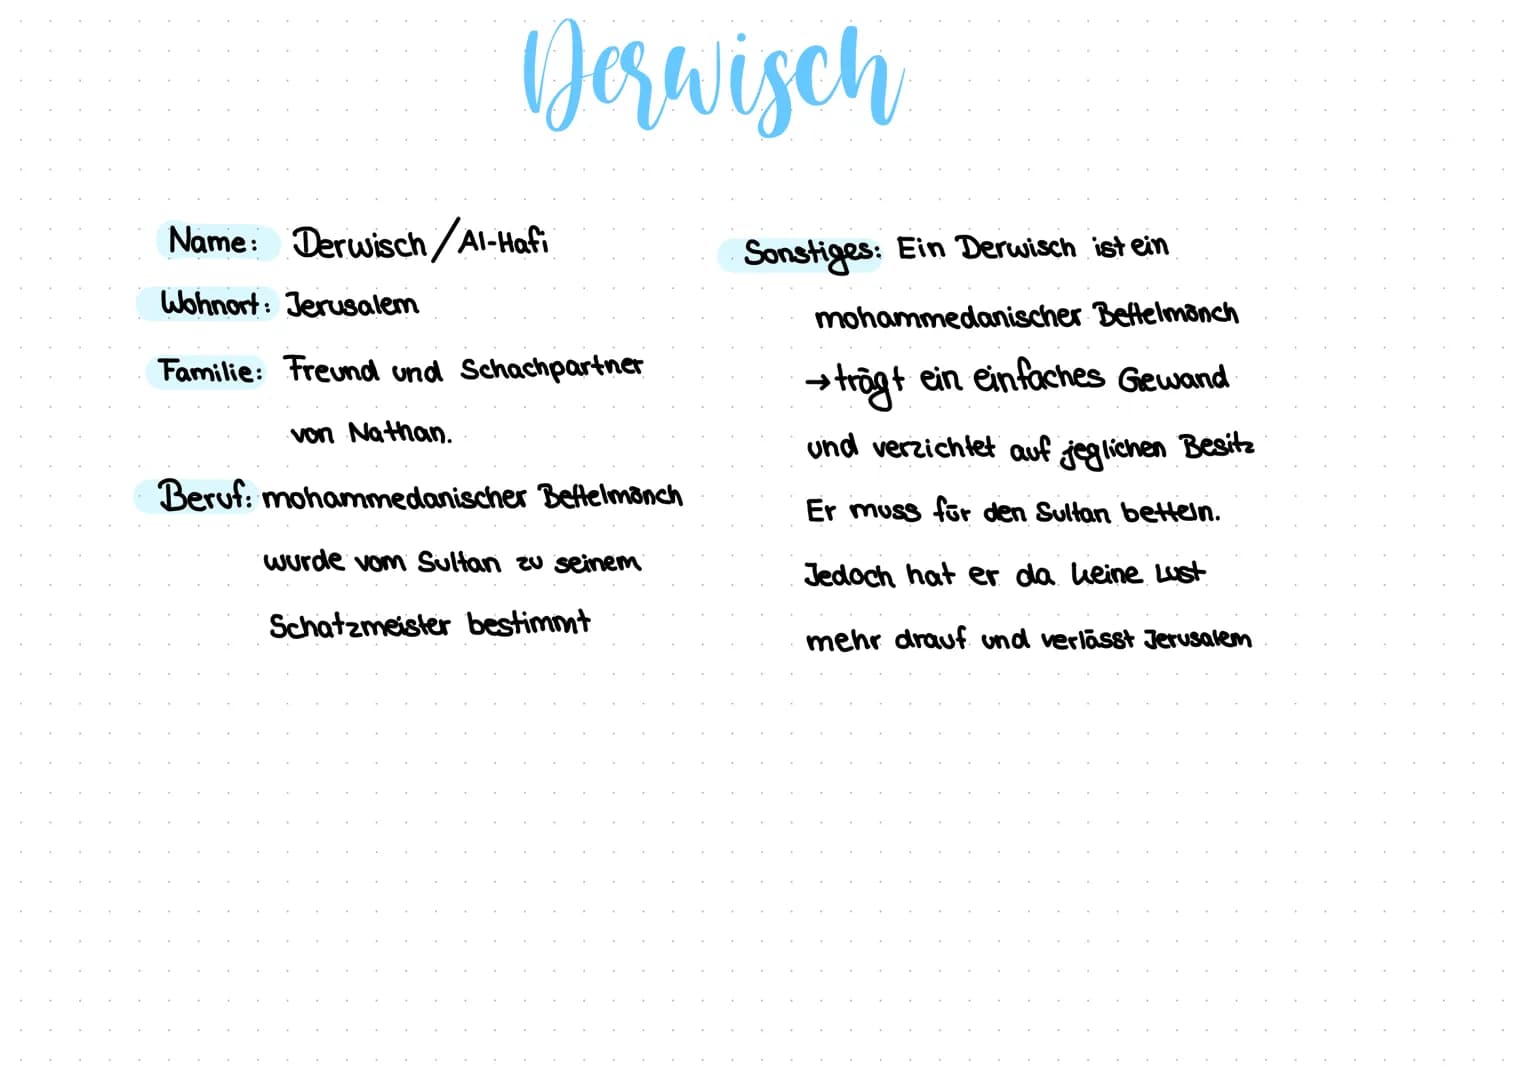 Derwisch
Name: Derwisch/Al-Hafi
Wohnort: Jerusalem
Familie: Freund und Schachpartner
von Nathan.
Beruf: mohammedanischer Bettelmönch
wurde vom Sultan zu seinem
Schatzmeister bestimmt
Sonstiges: Ein Derwisch ist ein
mohammedanischer Bettelmönch
→ trägt ein einfaches Gewand
und verzichtet auf jeglichen Besitz
Er muss für den Sultan betteln.
Jedoch hat er da keine Lust
mehr drauf und verlässt Jerusalem